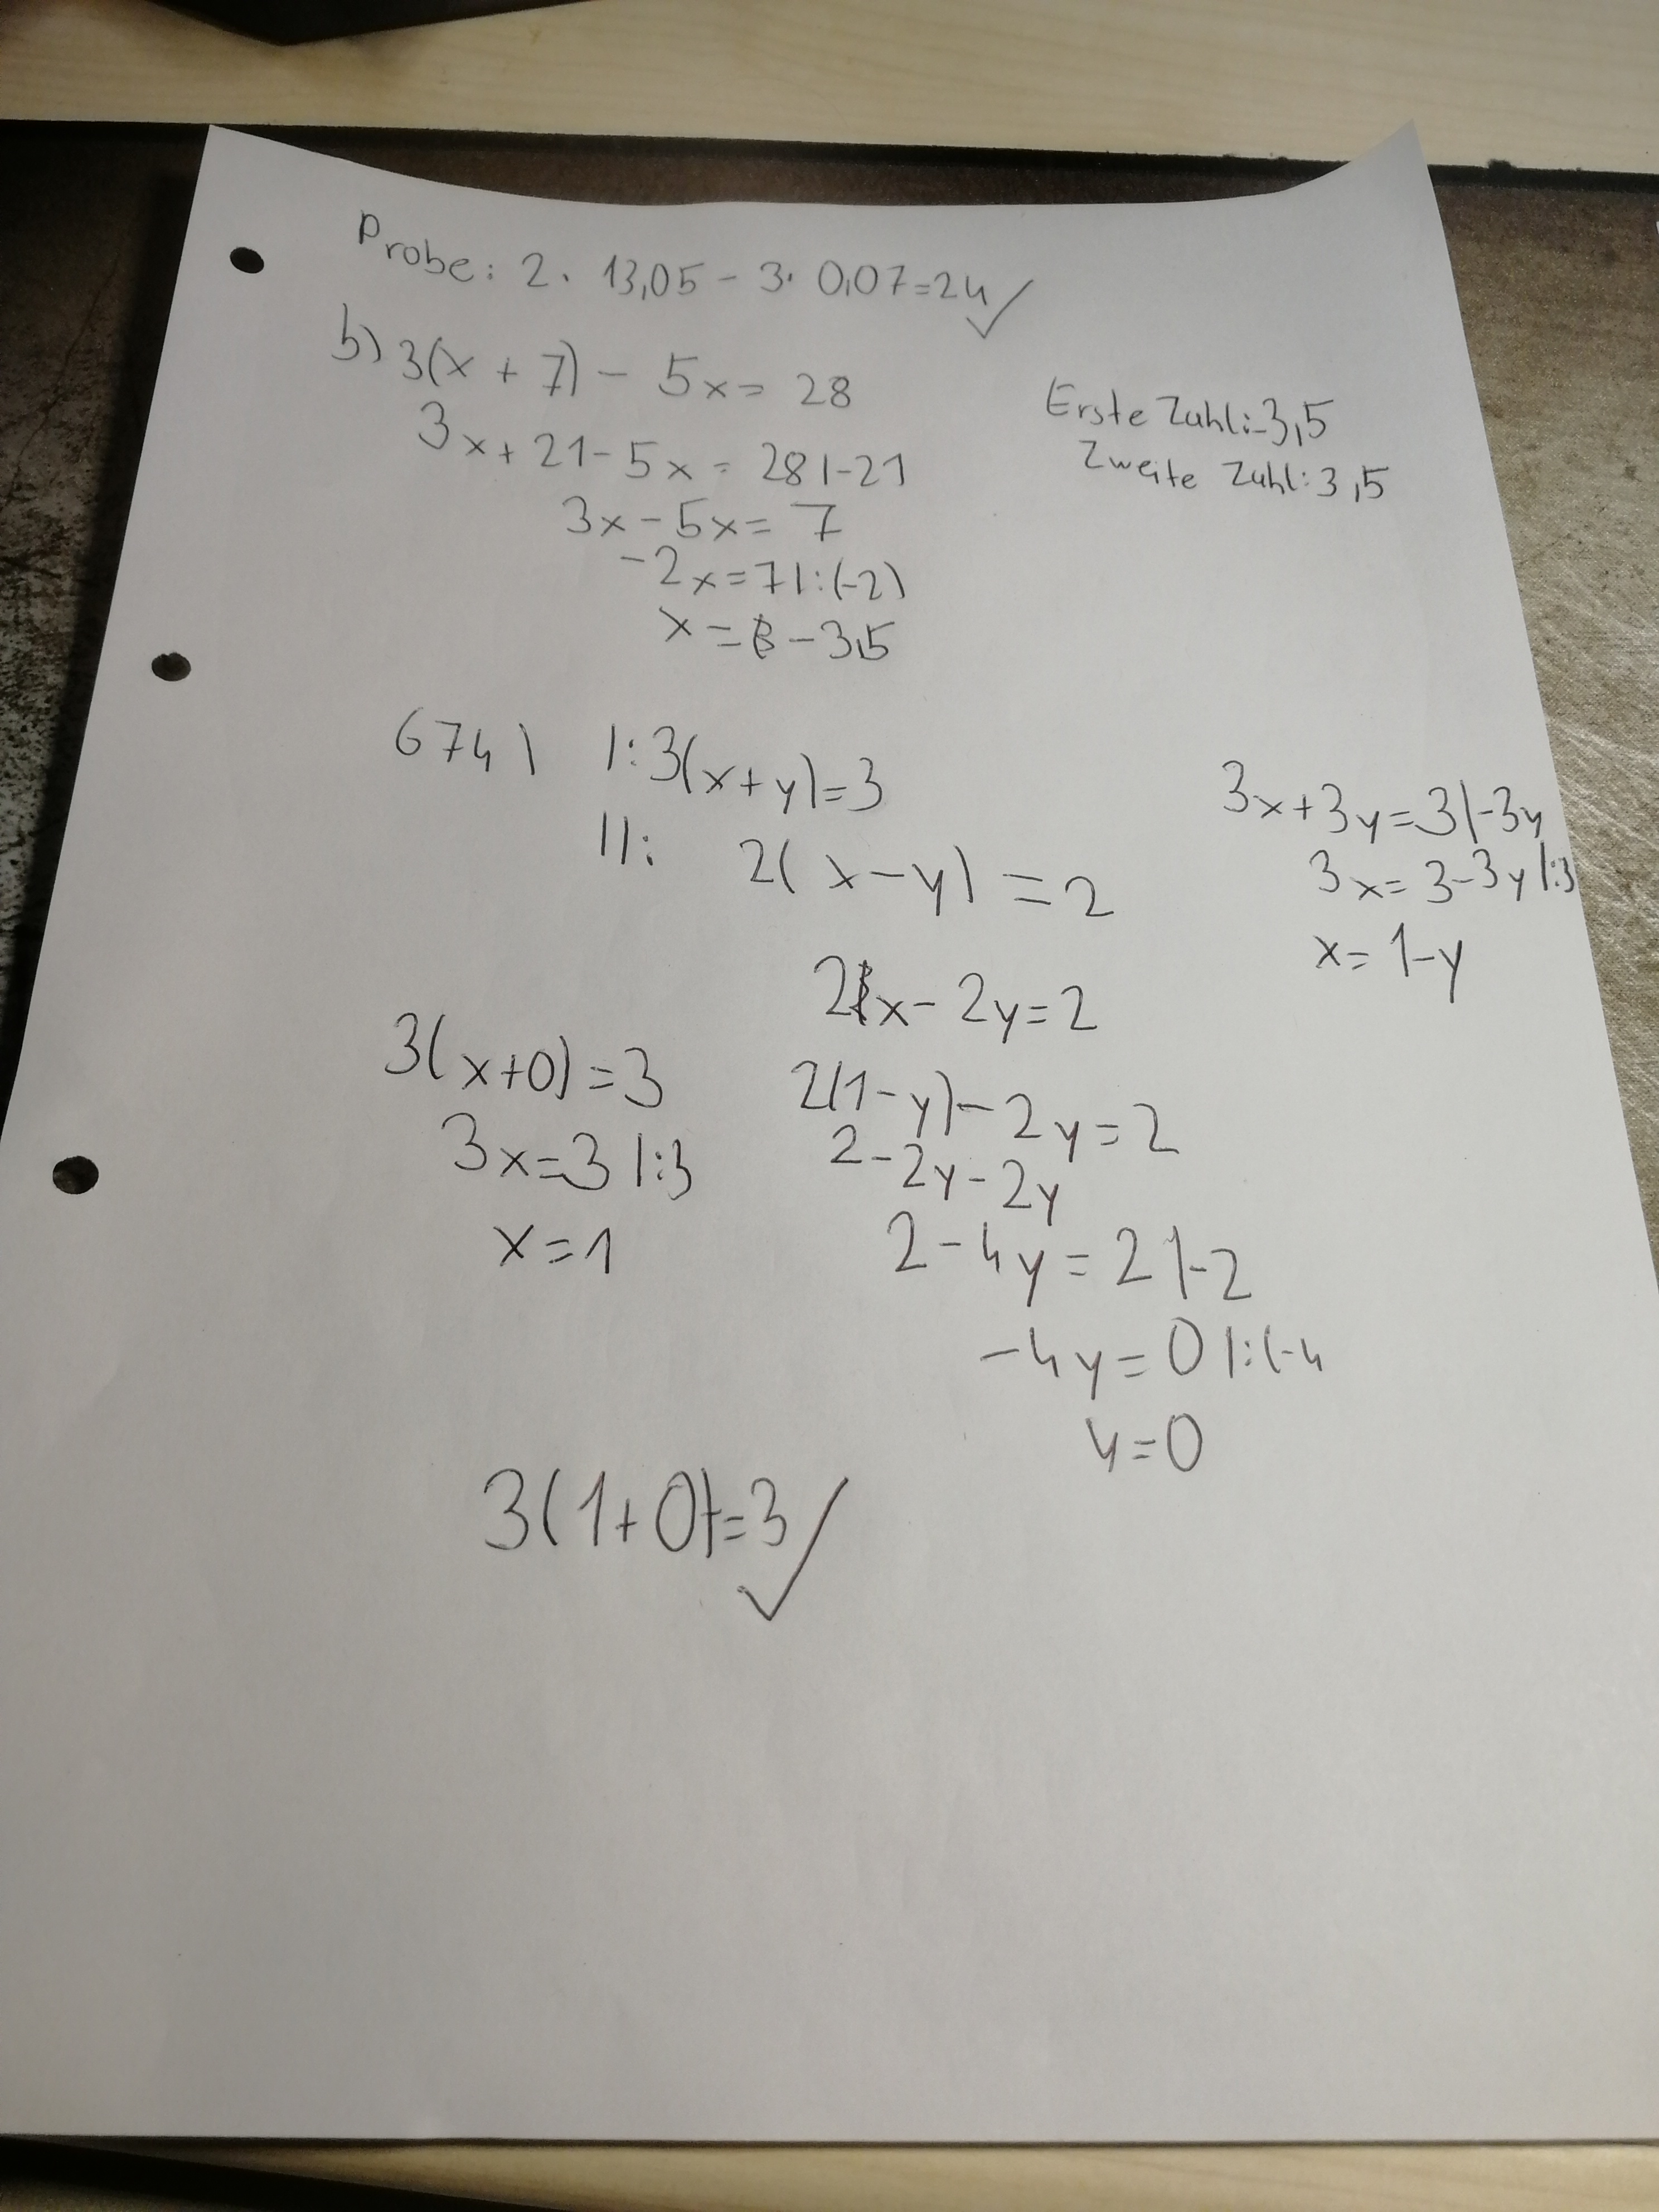 Probe: 2. 13,05 - 3. 0,07=24 ✓
b) 3(x + 7) - 5x= 28
3x+21-5x = 28 |-21
3x-5x= 7
-2x=7|:(-2)
x= -3,5
Erste Zahl:-3,5
Zweite Zahl:3,5
674) I:3(x+y)=3
II: 2(x-y)=2
3x+3y=3|-3y
3x=3-3y|:3
x=1-y
2x-2y=2
2(1-y)-2y=2
2-2y-2y
2-4y=2|-2
-4y=0|:(-4
y=0
3(x+0)=3
3x=3|:3
x=1
3(1+0)=3 ✓